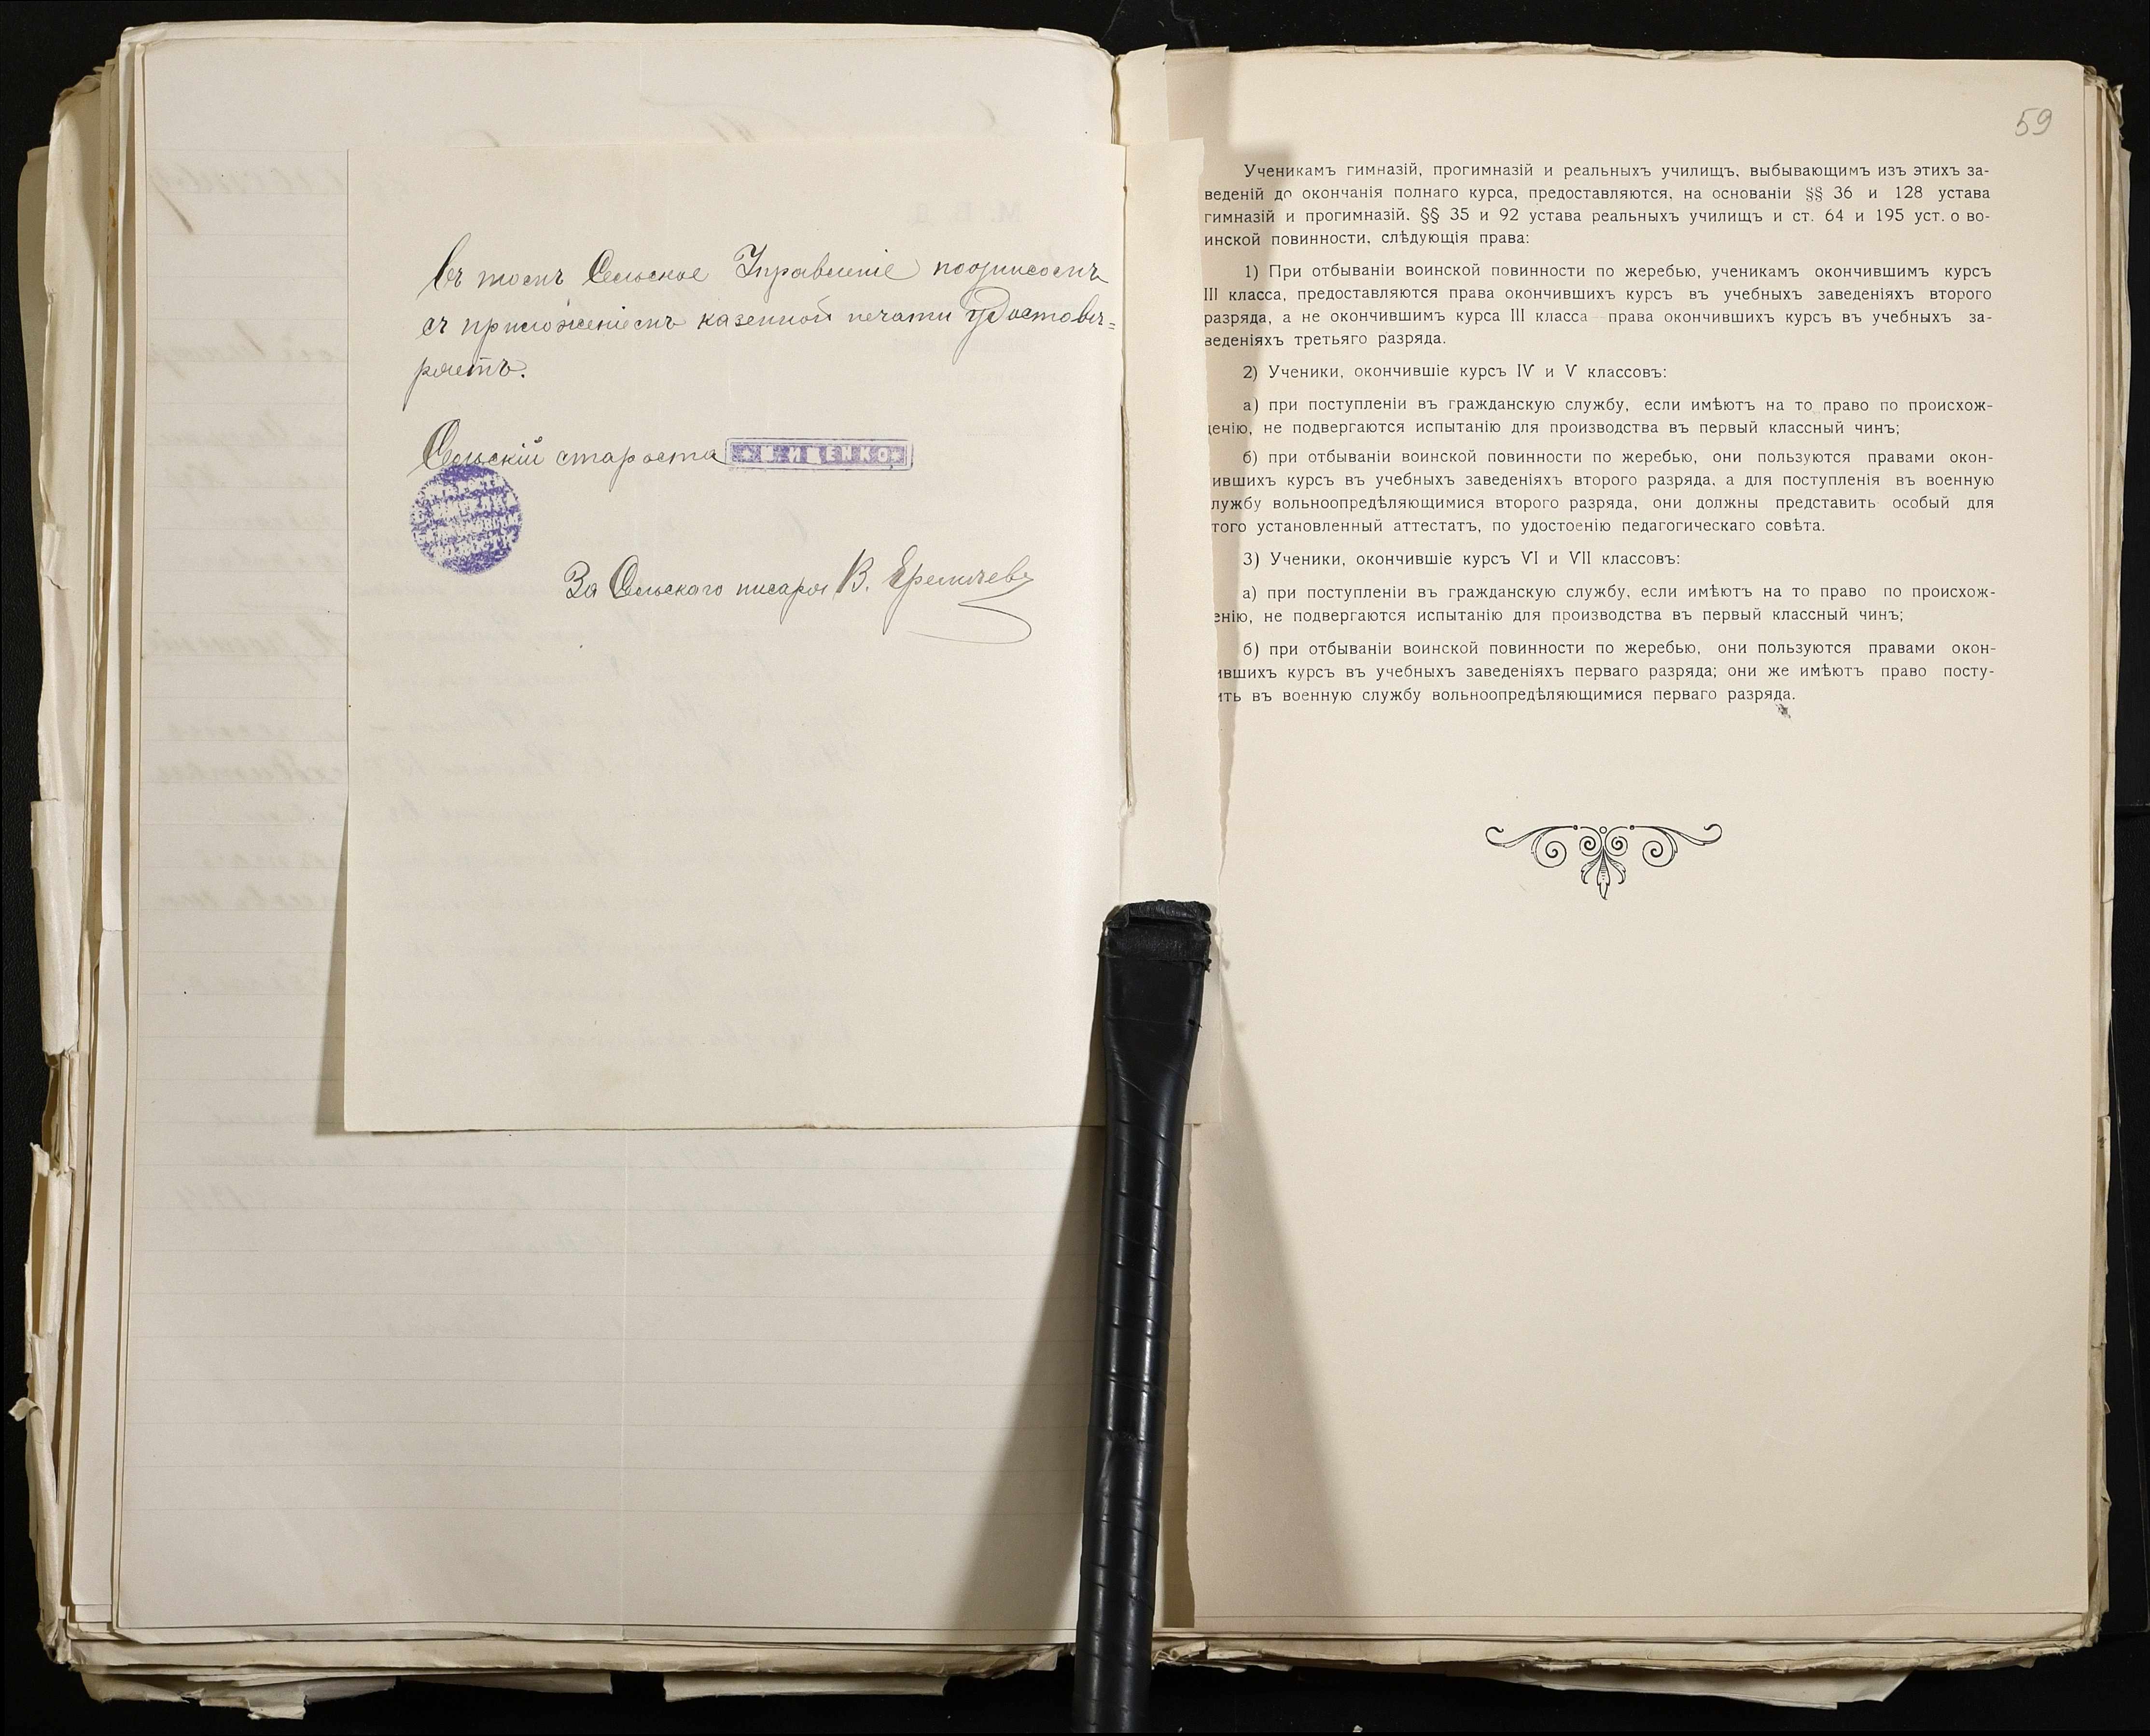 въ томъ Сельское Управленіе подписомъ
съ приложеніемъ казенной печати удостове=
ряетъ.
Сельскій староста ИЩЕНКО
ВОЛОСТИ
За Сельскаго писаря В.
59
Ученикамъ гимназій, прогимназій и реальныхъ училищъ, выбывающимъ изъ этихъ за-
веденій до окончанія полнаго курса, предоставляются, на основаніи §§ 36 и 128 устава
гимназій и прогимназій. §§ 35 и 92 устава реальныхъ училищъ и ст. 64 и 195 уст. о во-
инской повинности, слѣдующія права:
1) При отбываніи воинской повинности по жеребью, ученикамъ окончившимъ курсъ
III класса, предоставляются права окончившихъ курсъ въ учебныхъ заведеніяхъ второго
разряда, а не окончившимъ курса III класса—права окончившихъ курсъ въ учебныхъ за-
веденіяхъ третьяго разряда.
2) Ученики, окончившіе курсъ IV и V классовъ:
а) при поступленіи въ гражданскую службу, если имѣютъ на то право по происхож-
денію, не подвергаются испытанію для производства въ первый классный чинъ;
б) при отбываніи воинской повинности по жеребью, они пользуются правами окон-
ившихъ курсъ въ учебныхъ заведеніяхъ второго разряда, а для поступленія въ военную
лужбу вольноопредѣляющимися второго разряда, они должны представить особый для
того установленный аттестатъ, по удостоенію педагогическаго совѣта.
3) Ученики, окончившіе курсъ VI и VII классовъ:
а) при поступленіи въ гражданскую службу, если имѣютъ на то право по происхож-
енію, не подвергаются испытанію для производства въ первый классный чинъ;
б) при отбываніи воинской повинности по жеребью, они пользуются правами окон-
ившихъ курсъ въ учебныхъ заведеніяхъ перваго разряда; они же имѣютъ право посту-
ить въ военную службу вольноопредѣляющимися перваго разряда.